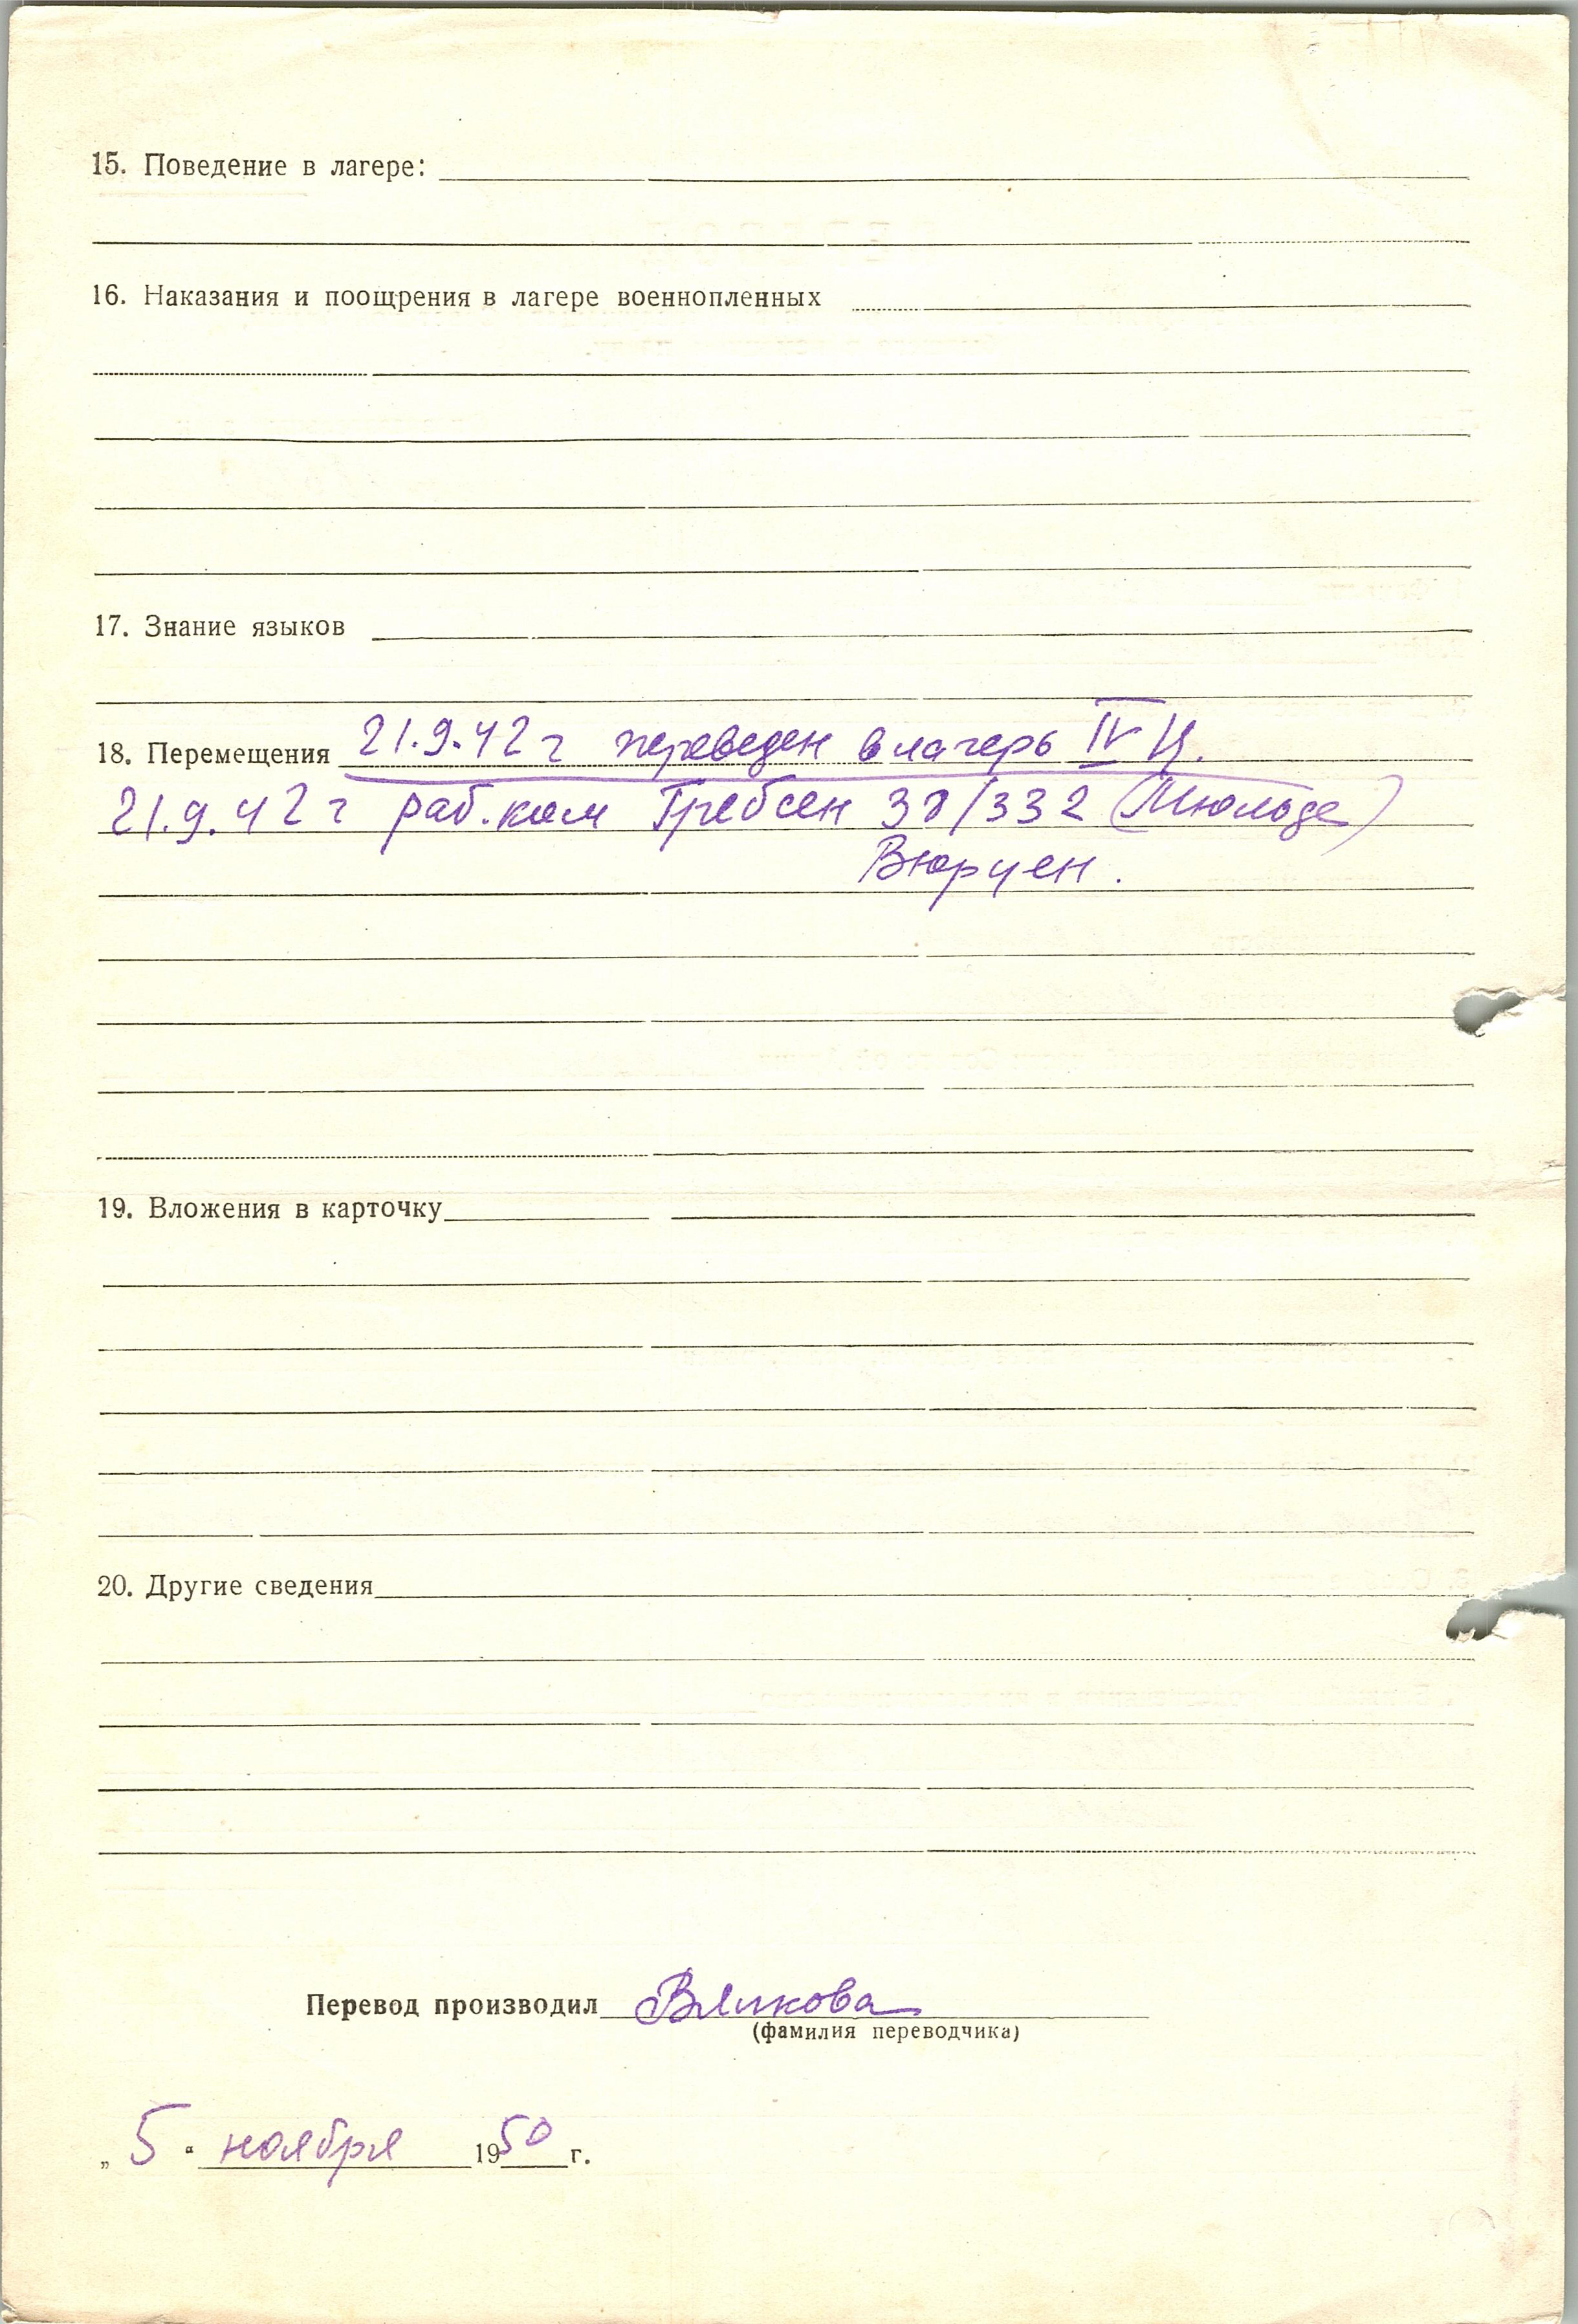 15. Поведение в лагере:
16. Наказания и поощрения в лагере военнопленных
17. Знание языков
18. Перемещения 21.9.42 г переведен в лагерь IV Ц.
21.9.42 г раб.ком Гребсен 38/332 (Мюльде)
Вюрцен.
19. Вложения в карточку
20. Другие сведения
Перевод производил
(фамилия переводчика)
„ 5 “ ноября 1950 г.